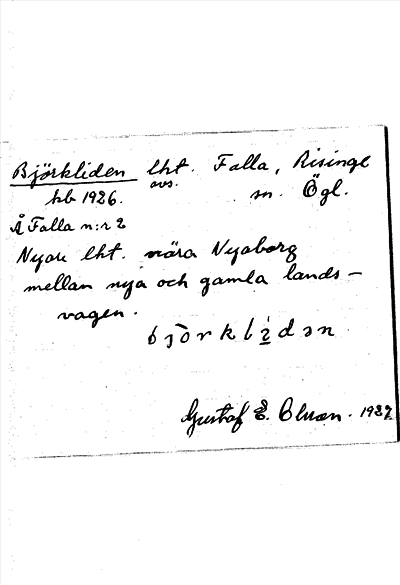 Björkliden lht. Falla, Risinge
kb 1926. avs. sn. Ögl.
Å Falla n:r 2
Nyare lht. nära Nyaborg
mellan nya och gamla lands-
vagen.
Gustaf E. 1937.